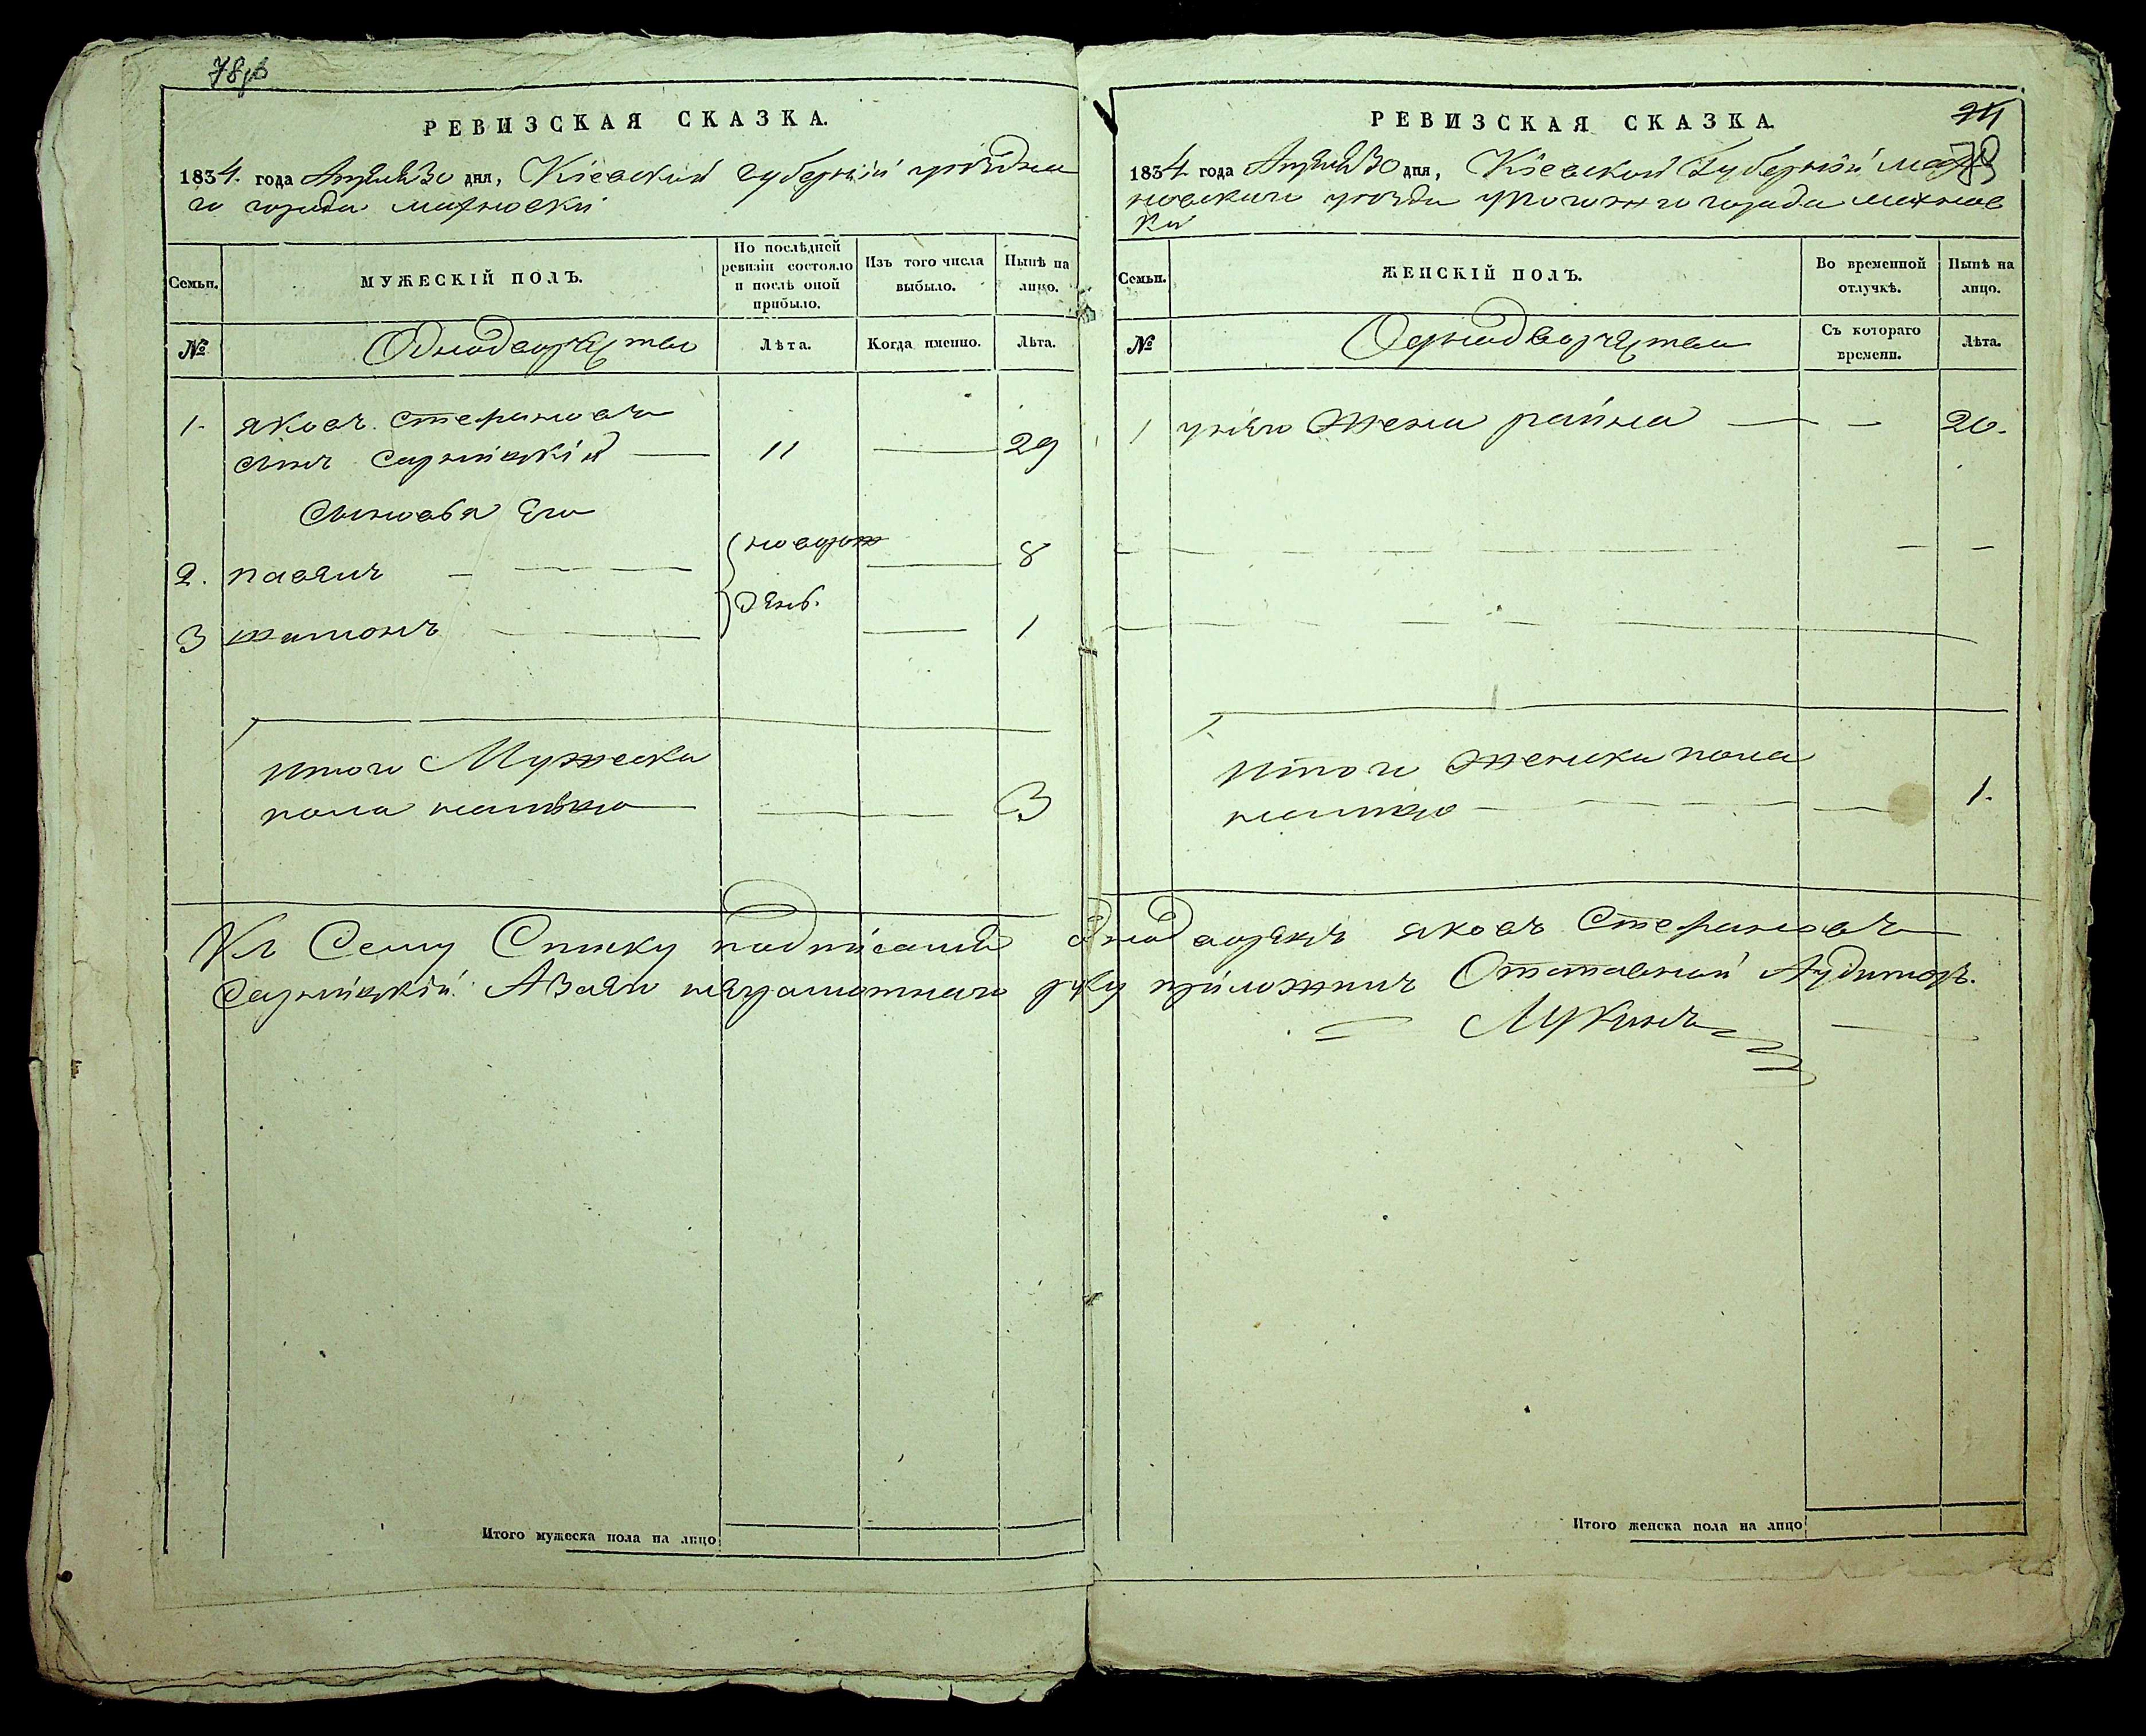 78об
РЕВИЗСКАЯ СКАЗКА.
1834. года Апреля 30 дня, Кіевской губерніи уѣздна
го города махновки
Семьи.
МУЖЕСКІЙ ПОЛЪ.
По послѣдней ревизіи состояло и послѣ оной прибыло.
Изъ того числа выбыло.
Нынѣ на лицо.
№
Однодворцы
Лѣта.
Когда именно.
Лѣта.
1. яковъ. Стефановъ
сынъ 11 29
Сыновья Его
2. павелъ новорож 8
3 денъ. 1
Итого Мужеска
пола налицо 3
Итого мужеска пола на лицо
РЕВИЗСКАЯ СКАЗКА.
24
79
1834 года Апреля 30 дня, Кіевской Губерніи мах
новскаго уезда города махнов
ки
Семьи.
ЖЕНСКІЙ ПОЛЪ.
Во временной отлучкѣ.
Нынѣ на лицо.
№
Съ котораго времени.
Лѣта.
1 у него жена 20.
Итого женска пола
налицо 1.
Къ Сему Списку однодворецъ яковъ Стефановъ
неграмотнаго руку приложилъ Отставной Аудиторъ.
Лукинъ
Итого женска пола на лицо